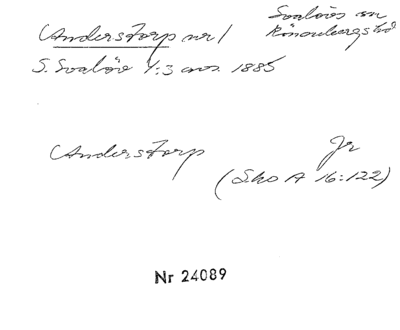 Anderstorp nr 1 Svalövs sn
Rönnebergs hd
S. Svalöv 1:3 avs. 1885
Anderstorp Jr
(Sko A 16:122)
Nr 24089